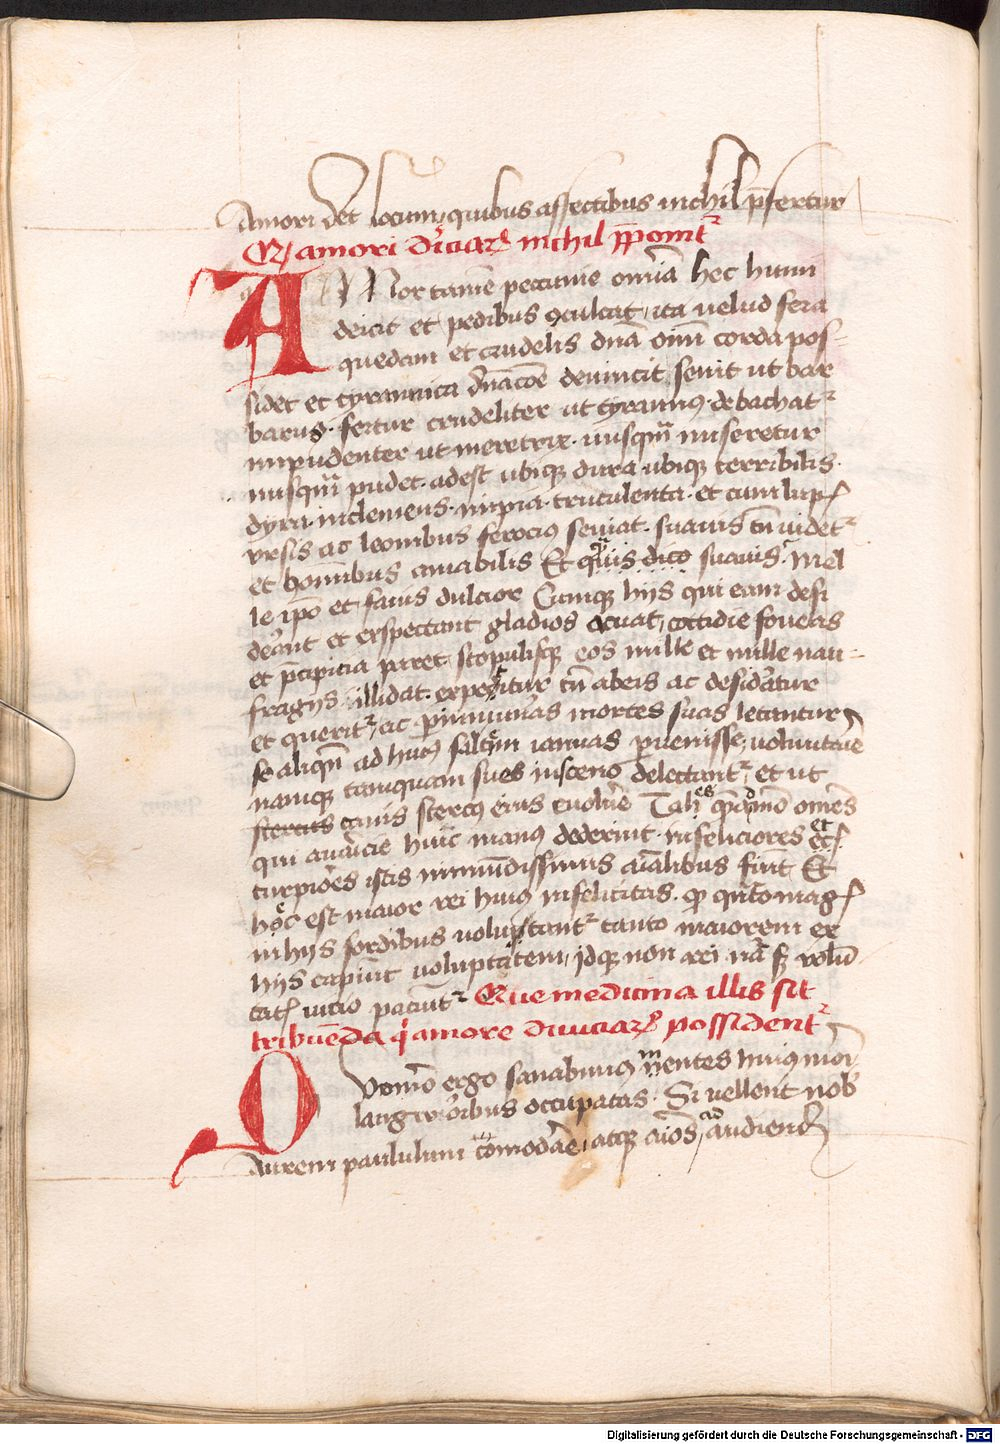 Amori det locum, quibus affectibus nichil p̄fertur
Qꝫ amori diuiciaꝝ nichil p̄ponitᷣ
AMor tamē peccunie omīa hec humi
deicit et pedibus ꝯculcat, ita uelud fera
quedam et crudelis dn̄a oīm corda pos-
sidet et tyrannica dn̄acōe deuincit, seuit ut bar
barus· fertur crudeliter ut tyrannꝰ· debachatᷣ
inpudenter ut meretrix· nusqm̄ miseretur
nusqm̄ pudet· adest ubiqꝫ dura ubiqꝫ terribilis·
dyra· inclemens· inpia· truculenta· et cum lupꝭ
vrsis ac leonibus ferociꝰ seuiat· suauis tn̄ uidetᷣ
et hom̄ibus amabilis Et qͣuis dico suauis· Mel
le ip̄o et fauis dulcior Cumqꝫ hijs qui eam desi
derāt et exspectant gladios acuat, cottidie foueas
et p̄cipicia paret, scopulisqꝫ eos mille et mille nau-
fragijs illidat· expetitur tn̄ ab eis ac desideratur
et queritᷣ, ac p̄ innumeras mortes suas letantur
se aliqn̄ ad huiꝰ saltem ianuas ꝑuenisse, voluntarie
namqꝫ tamquam sues in sceno delectantᷣ, et ut
stercus canis stercꝰ eius euoluere Tales quēadmodū om̄es
qui auaricie huic manꝰ dederint· infeliciores et
turpiores istis inmundissimis aīalibus fiunt Et
hoc est maior rei huiꝰ infelicitas· qꝫ quāto magꝭ
in hijs sordibus voluptantᷣ tanto maiorem ex
hijs capiunt uoluptatem, jdqꝫ non rei nā sꝫ volun
tatꝭ uicio paciuntᷣ Que medicina illis sit
tribuenda qͥ amore diuiciaꝝ possidentᷣ
QVomō ergo sanabimꝰ mentes huiꝰmōi
languoribus occupatas· Si vellent nob
Aurem paululum cōmodare, atqꝫ aīos ad audiend
Digitalisierung gefördert durch die Deutsche Forschungsgemeinschaft - DFG